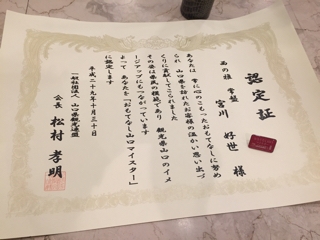 認定証
西の雅 常盤
宮川 好世 様
あなたは 常に心のこもったおもてなしに努め
られ 山口県を訪れたお客様の温かい思い出づ
くりに貢献してこられました
その姿は県民の模範であり 観光県山口のイメ
ージアップにもつながっています
よって あなたを「おもてなし山口マイスター」
に認定します
平成二十九年十月三十日
一般社団法人 山口県観光連盟
会長 松村 孝明